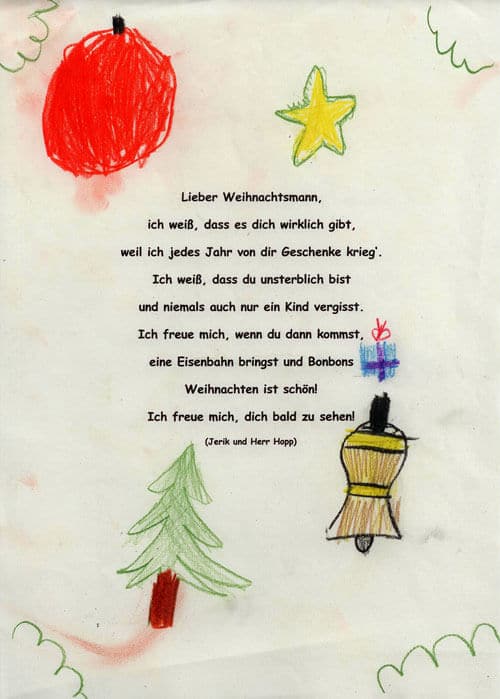 Lieber Weihnachtsmann,
ich weiß, dass es dich wirklich gibt,
weil ich jedes Jahr von dir Geschenke krieg'.
Ich weiß, dass du unsterblich bist
und niemals auch nur ein Kind vergisst.
Ich freue mich, wenn du dann kommst,
eine Eisenbahn bringst und Bonbons
Weihnachten ist schön!
Ich freue mich, dich bald zu sehen!
(Jerik und Herr Hopp)